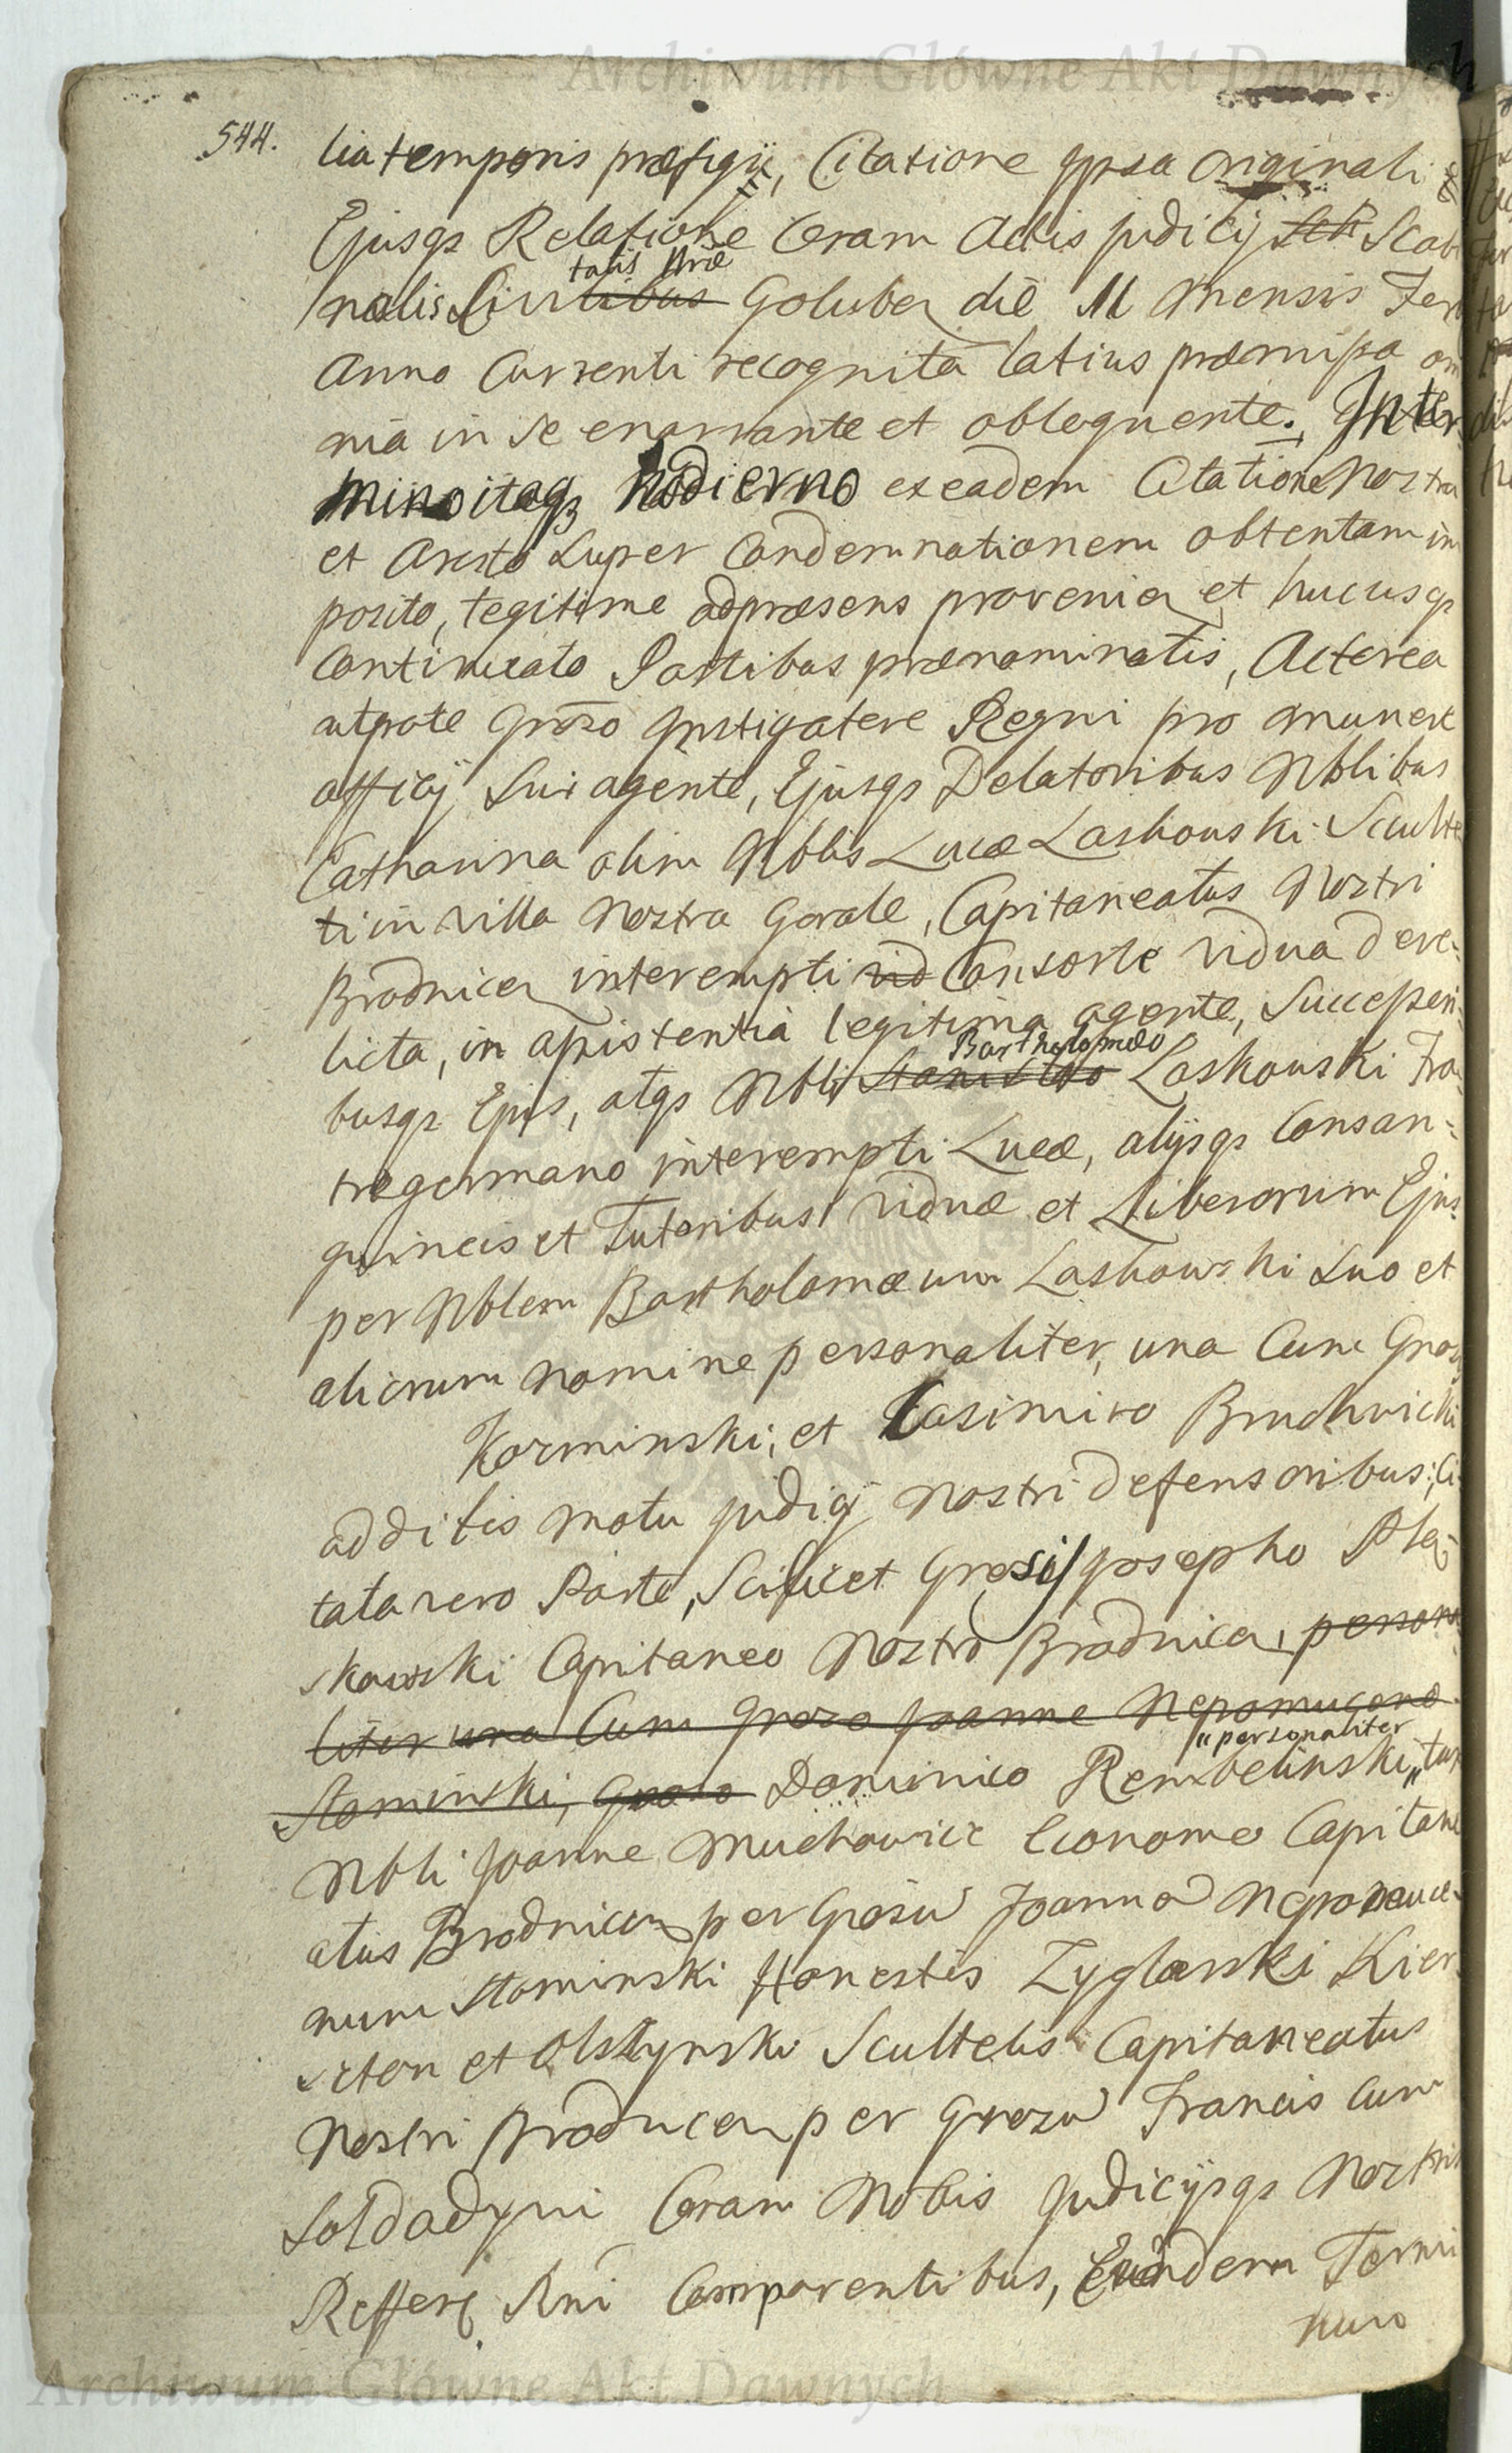 Archiwum Główne Akt Dawnych
544.
lia temporis præfigij, Citatione ipsa originali
Ejusqz Relatione Coram Actis judicij Scab
talis Nræ
nalis Civilibus Goluben die 11 Mensis
Anno Currenti recognita latius præmissa om
nia in se enarrante et obloquente., In ter
minoitaqz hodierno ex eadem Citatione Nostra
et Aresto super Condemnationem obtentam im
posito, legitime adpræsens provenien et hucusqz
Continuato Partibus prænominatis, Actorea
utpote Groso Instigatore Regni pro munere
officij Sui agente, Ejusqz Delatoribus Nblibus
Catharina olim Nblis Lucæ Laskowski Sculte
ti in Villa Nostra Gorale, Capitaneatus Nostri
Brodnicen interempti vid Consorte vidua dere-
licta, in assistentia legitima agente, Successori-
Bartholomæo
busqz Ejus, atqz Nbli Stanislao Laskowski Fra-
tregermano interempti Lucæ, alijsqz Consan-
guineis et Tutoribus viduæ et Liberorum Ejus
per Nblem Bartholomæum Laskowski suo et
aliorum nomine personaliter, una Cum Grosis
Korminski, et Casimiro Bruchwicki
additis motu judicij nostri defensoribus; Ci-
tata vero Parte, Scilicet Grosi Josepho Plą-
skowski Capitaneo Nostro Brodnicen, persona
liter una Cum Groso Joanne Nepomuceno
"personaliter
Stominski, Groso Dominico Rembelinski" tum
Nbli Joanne Muchowicz Economo Capitane
atus Brodnicen per Grosu Joanne Nepomuce-
num Stominski Honestis Zyglarski Kier
szten et Olszynski Scultetis Capitaneatus
Nostri Brodnicen per Grosu Francis cum
Soldadyni Coram Nobis Judicijsqz Nostris
Reffer Rni Comparentibus, Eundem Termi
num
Archiwum Główne Akt Dawnych